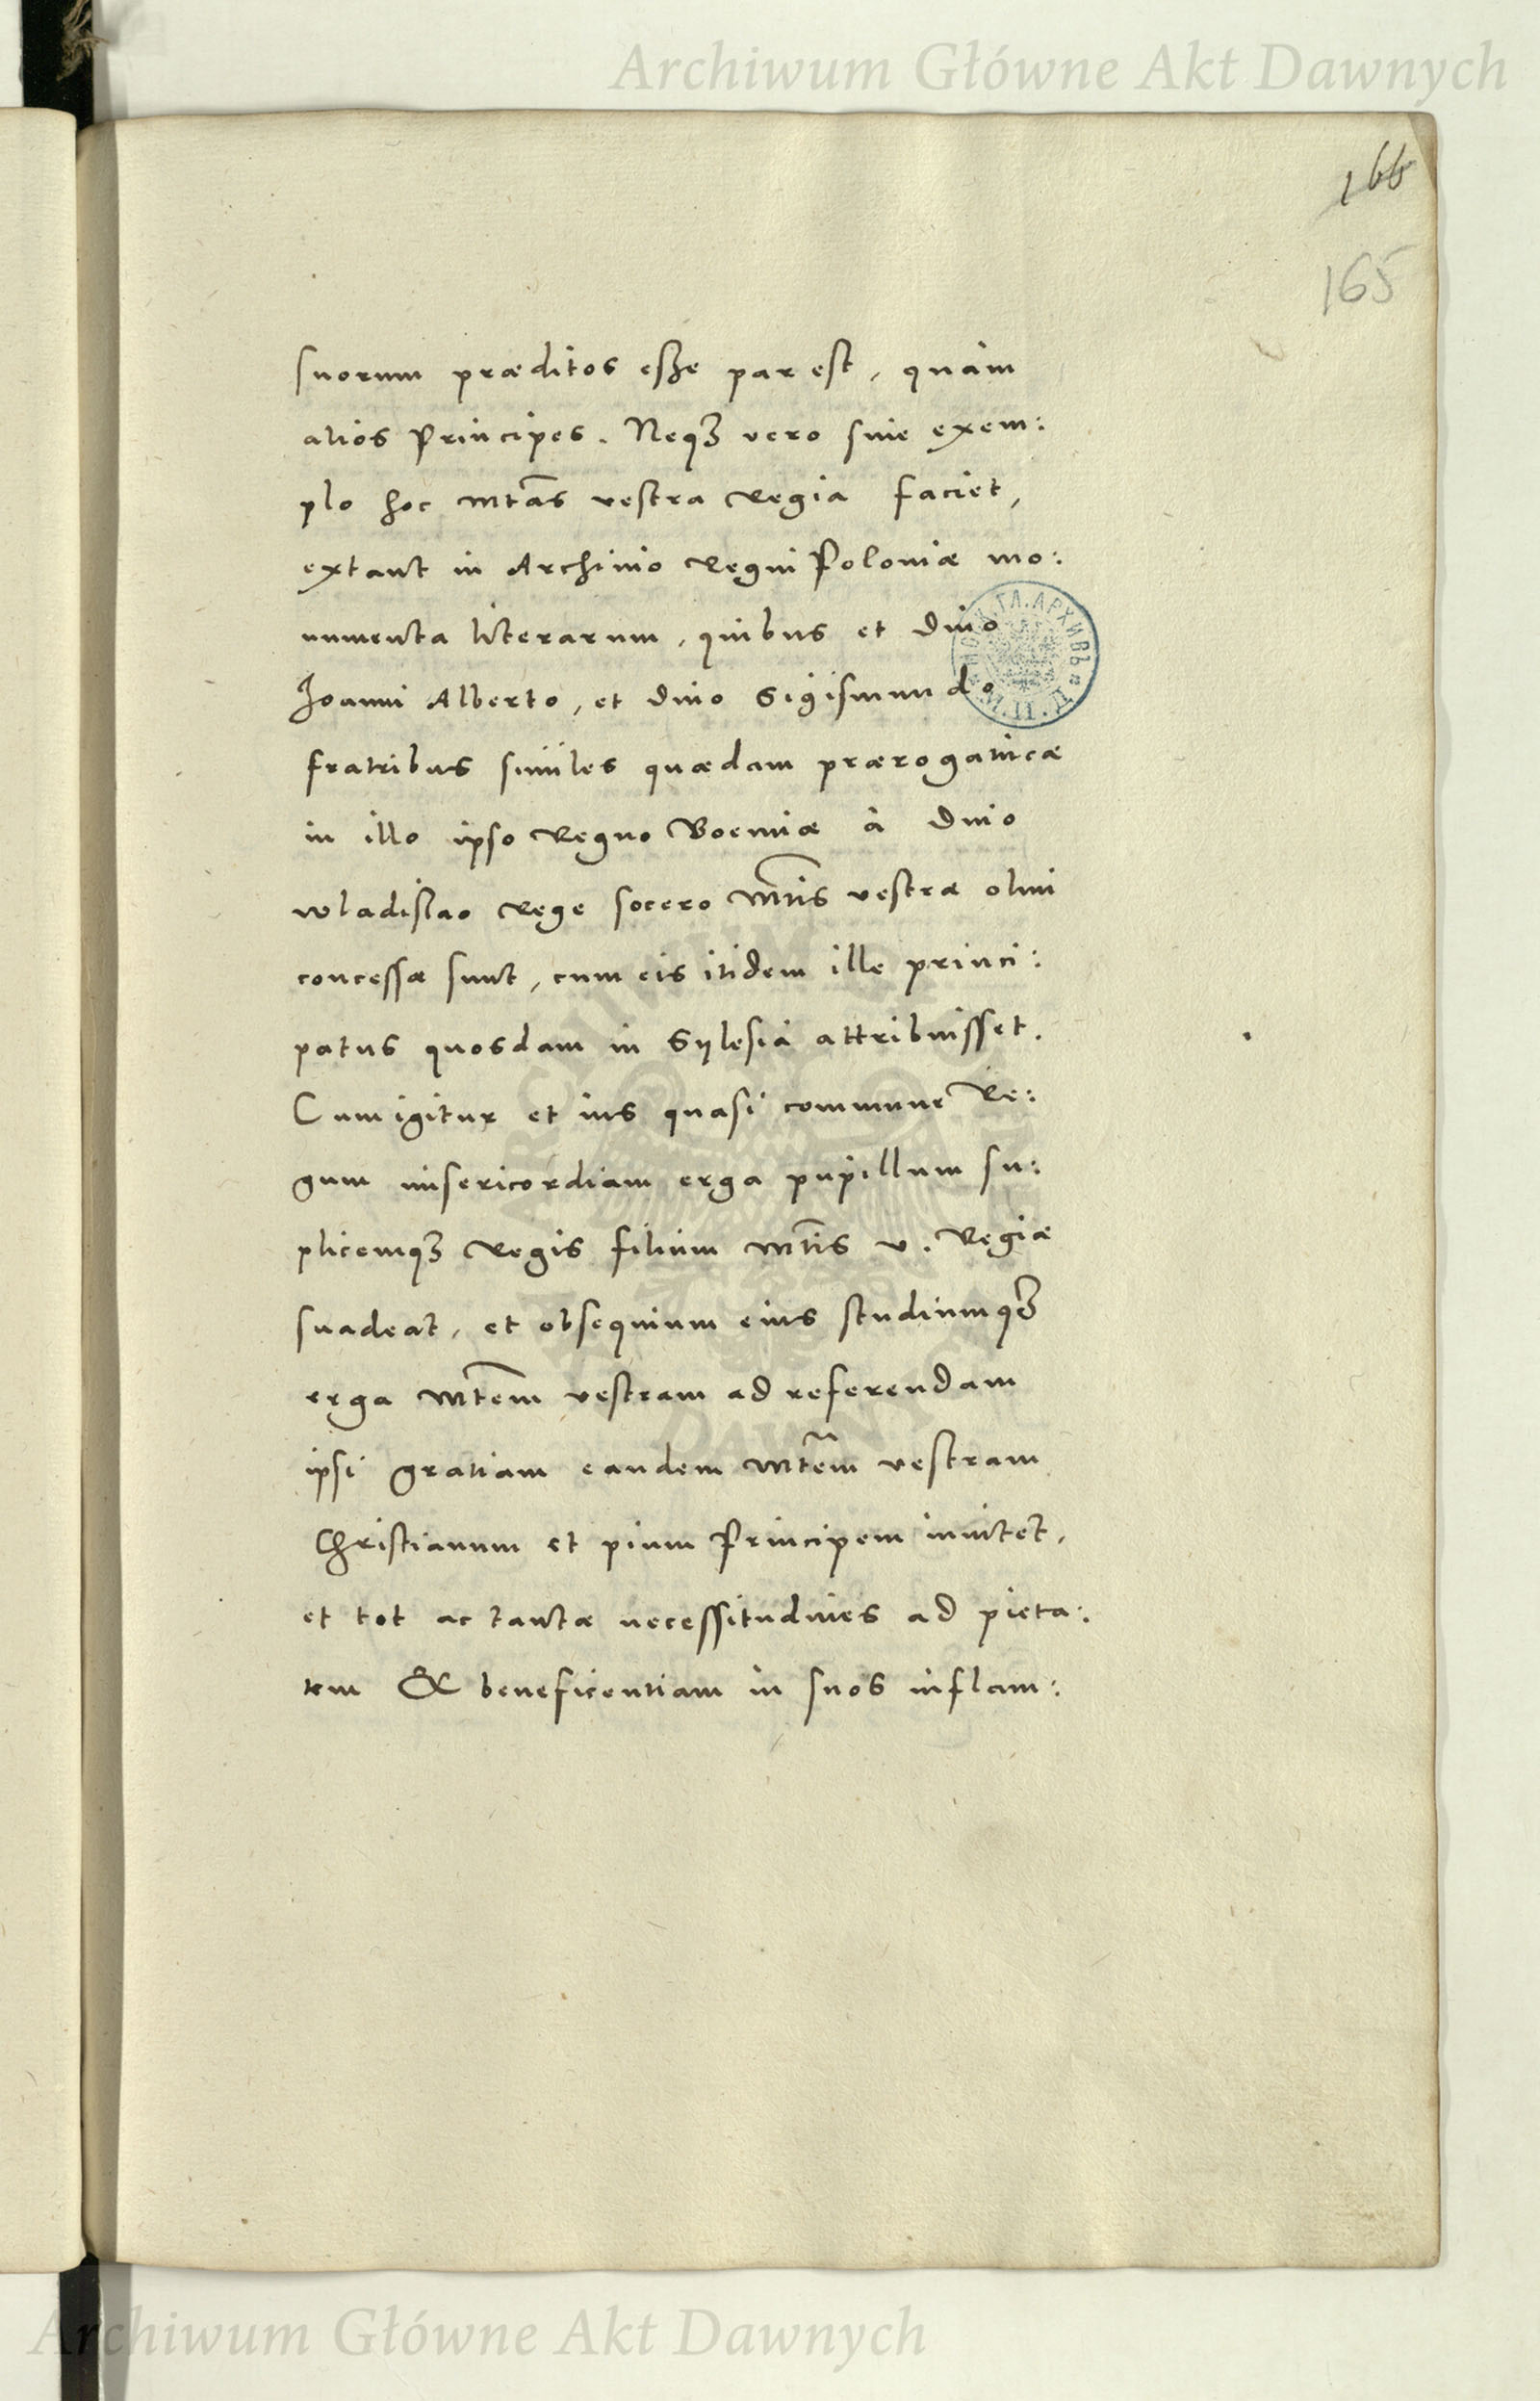 Archiwum Główne Akt Dawnych
166
165
suorum præditos esse par est, quàm
alios Principes. Neqꝫ vero sine exem:
plo hoc Mtas vestra Regia faciet,
extant in Archiuio Regni Poloniæ mo:
numenta literarum, quibus et Diuo
Joanni Alberto, et Diuo Sigismundo
fratribus similes quædam prærogatiuæ
in illo ipso Regno Boemiæ à Diuo
Wladislao Rege socero Mtis vestræ olim
concessæ sunt, cum eis itidem ille princi:
patus quosdam in Sylesia attribuisset.
Cum igitur et ius quasi commune Re:
gum misericordiam erga pupillum su:
plicemqꝫ Regis filium Mtis v. Regiæ
suadeat, et obsequium eius studiumqꝫ
erga Mtem vestram ad referendam
ipsi gratiam eandem Mtem vestram
Christianum et pium Principem inuitet,
et tot ac tantæ necessitudines ad pieta:
tem & beneficentiam in suos inflam:
Archiwum Główne Akt Dawnych